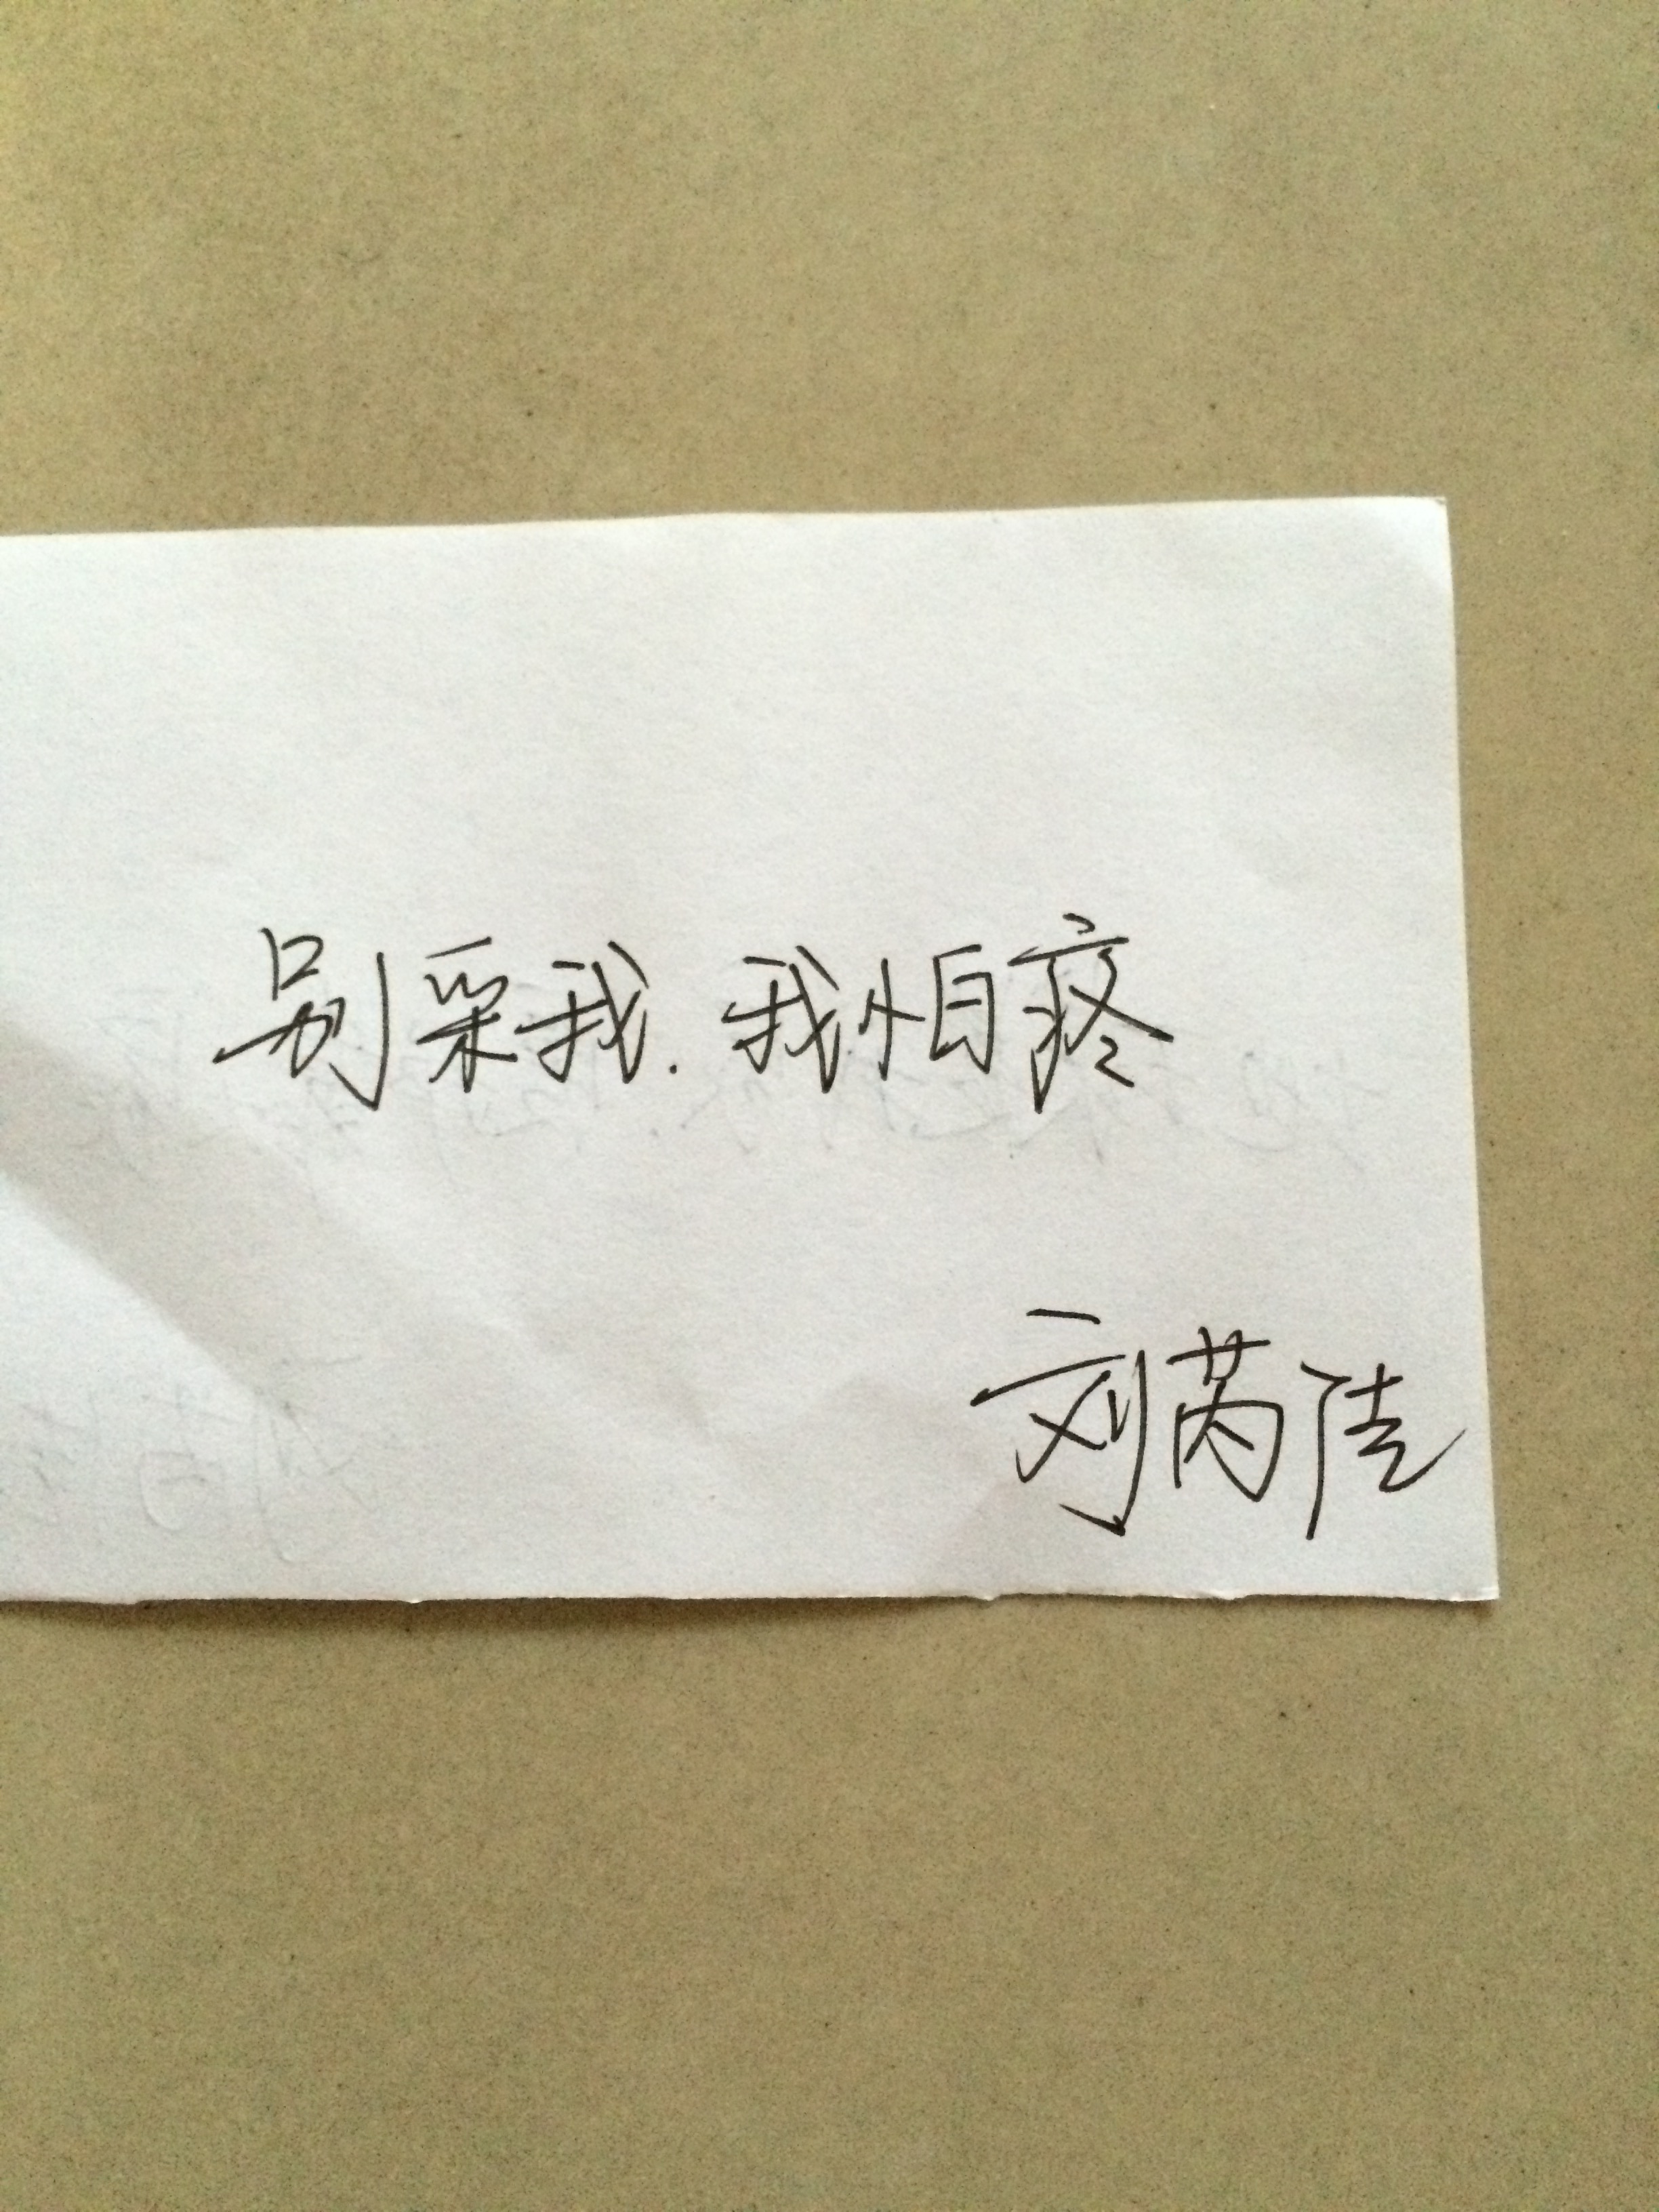 别采我.我怕疼
刘芮佳